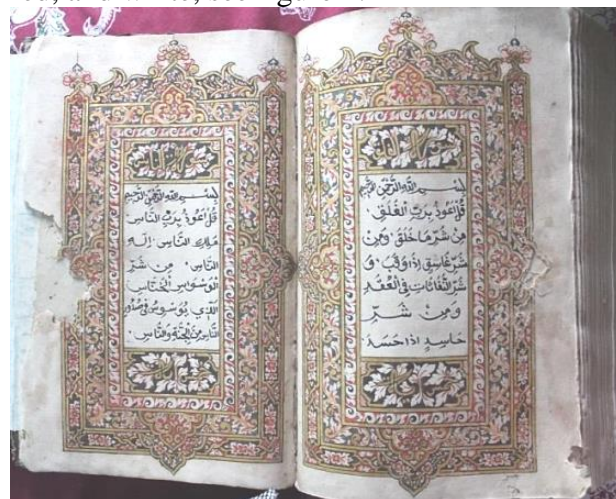 بِسْمِ اللّٰهِ الرَّحْمٰنِ الرَّحِيْمِ
قُلْ اَعُوْذُ بِرَبِّ الْفَلَقِ
مِنْ شَرِّ مَا خَلَقَ وَمِنْ
شَرِّ غَاسِقٍ اِذَا وَقَبَ وَ
شَرِّ النَّفَّاثَاتِ فِى الْعُقَدِ
وَمِنْ شَرِّ
حَاسِدٍ اِذَا حَسَدَ
بِسْمِ اللّٰهِ الرَّحْمٰنِ الرَّحِيْمِ
قُلْ اَعُوْذُ بِرَبِّ النَّاسِ
مَلِكِ النَّاسِ اِلٰهِ
النَّاسِ مِنْ شَرِّ
الْوَسْوَاسِ الْخَنَّاسِ
الَّذِى يُوَسْوِسُ فِى صُدُوْرِ
النَّاسِ مِنَ الْجِنَّةِ وَالنَّاسِ